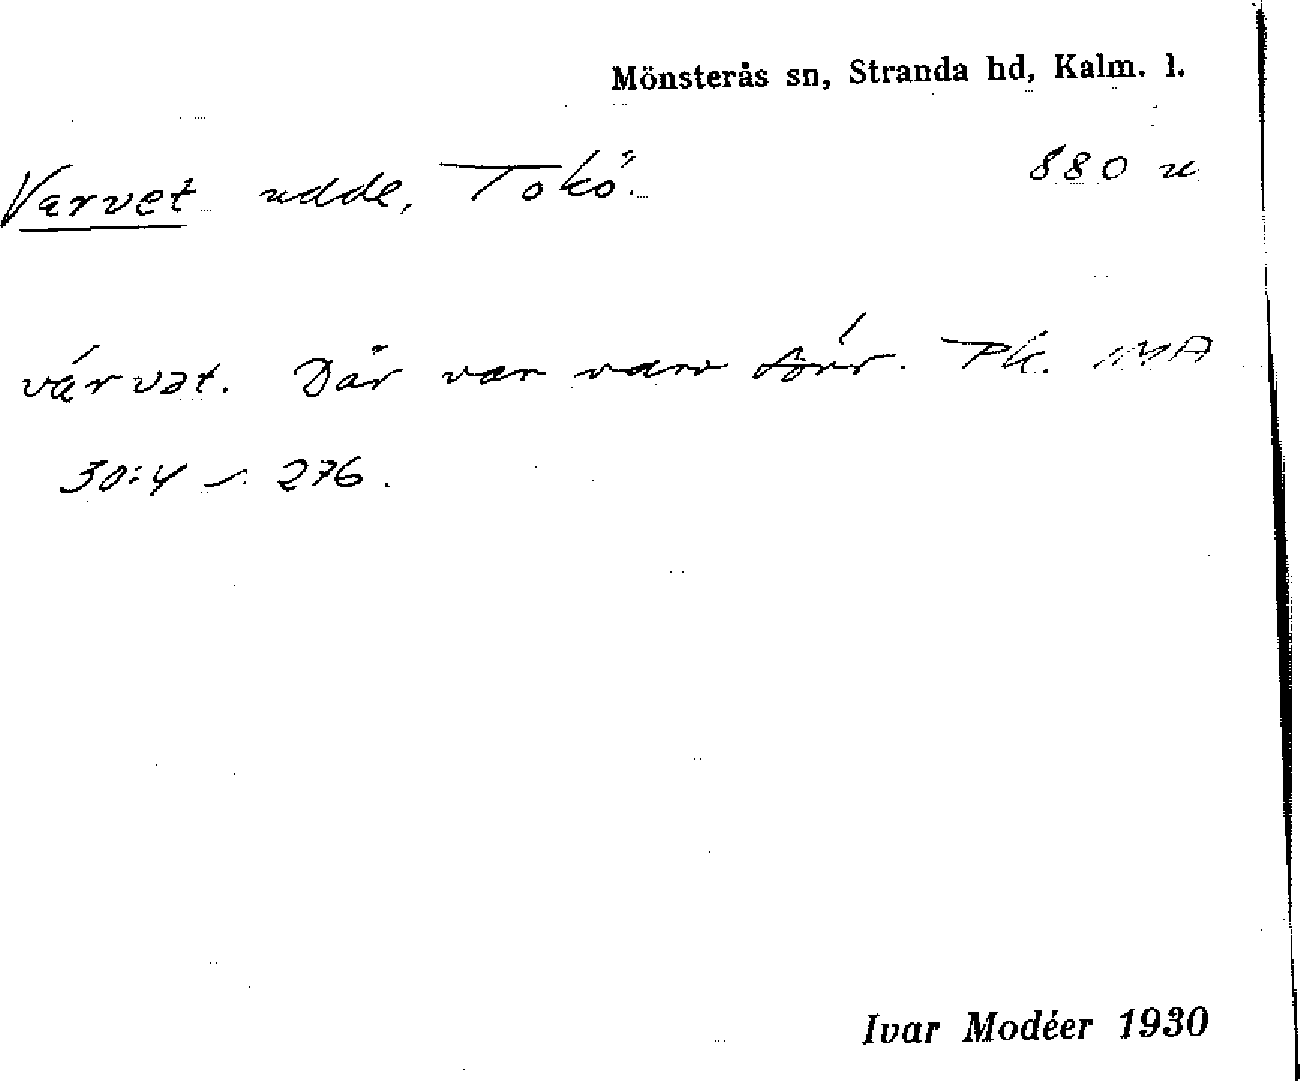 Mönsterås sn, Stranda hd, Kalm. l.
Varvet udde, Tokö. 880 u
várvət. Där var varv förr. Pk. IMA
30:4 s. 276.
Ivar Modéer 1930